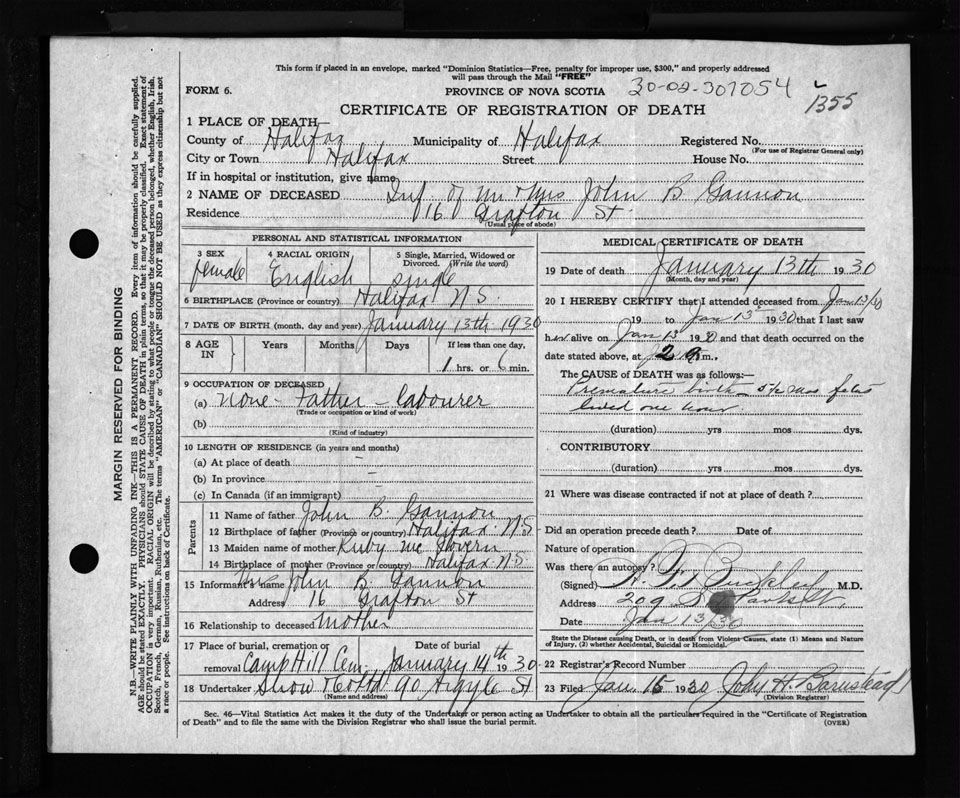 This form if placed in an envelope, marked "Dominion Statistics—Free, penalty for improper use, $300," and properly addressed
will pass through the Mail "FREE"
FORM 6.
PROVINCE OF NOVA SCOTIA
30-02-307054
1355
CERTIFICATE OF REGISTRATION OF DEATH
1 PLACE OF DEATH—
County of Halifax Municipality of Halifax Registered No.
(For use of Registrar General only)
City or Town Halifax Street House No.
If in hospital or institution, give name
2 NAME OF DECEASED Inf of Mr & Mrs John B Gannon
Residence 16 Grafton St
(Usual place of abode)
PERSONAL AND STATISTICAL INFORMATION
3 SEX 4 RACIAL ORIGIN 5 Single, Married, Widowed or
Divorced. (Write the word)
female English single
6 BIRTHPLACE (Province or country) Halifax N.S.
7 DATE OF BIRTH (month, day and year) January 13th 1930
8 AGE IN Years Months Days If less than one day,
1 hrs. or 6 min.
9 OCCUPATION OF DECEASED
(a) None - Father - labourer
(Trade or occupation or kind of work)
(b)
(Kind of industry)
10 LENGTH OF RESIDENCE (in years and months)
(a) At place of death –
(b) In province –
(c) In Canada (if an immigrant)
Parents
11 Name of father John B. Gannon
12 Birthplace of father (Province or country) Halifax N.S
13 Maiden name of mother Ruby Mc Govern
14 Birthplace of mother (Province or country) Halifax N.S
15 Informant Mrs John B. Gannon
Address 16 Grafton St
16 Relationship to deceased Mother
17 Place of burial, cremation or removal Date of burial
Camp Hill Cem. January 14th 1930
18 Undertaker Snow & Co Ltd 90 Argyle St
(Name and address)
MEDICAL CERTIFICATE OF DEATH
19 Date of death January 13th 1930
(Month, day and year)
20 I HEREBY CERTIFY that I attended deceased from Jan 13/30
19 to Jan 13 1930 that I last saw
her alive on Jan 13 19 and that death occurred on the
date stated above, at 2 m.
The CAUSE of DEATH was as follows:—
Premature birth
lived one hour.
(duration) yrs mos dys.
CONTRIBUTORY
(duration) yrs mos dys.
21 Where was disease contracted if not at place of death?
Did an operation precede death? Date of
Nature of operation
Was there an autopsy?
(Signed) Buckley M.D.
Address 209
Date Jan 13/30
State the Disease causing Death, or in death from Violent Causes, state (1) Means and Nature
of Injury, (2) whether Accidental, Suicidal or Homicidal.
22 Registrar's Record Number
23 Filed Jan 15 1930 John H. Barnstead
(Division Registrar)
Sec. 46—Vital Statistics Act makes it the duty of the Undertaker or person acting as Undertaker to obtain all the particulars required in the "Certificate of Registration
of Death" and to file the same with the Division Registrar who shall issue the burial permit.
(OVER)
MARGIN RESERVED FOR BINDING
N.B.—WRITE PLAINLY WITH UNFADING INK—THIS IS A PERMANENT RECORD. Every item of information should be carefully supplied.
AGE should be stated EXACTLY. PHYSICIANS should STATE CAUSE OF DEATH in plain terms, so that it may be properly classified. Exact statement of
OCCUPATION is very important. RACIAL ORIGIN will be described by stating to what people or tongue the deceased person belonged, whether English, Irish,
Scotch, French, German, Russian, Ruthenian, etc. The terms "AMERICAN" or "CANADIAN" SHOULD NOT BE USED as they express citizenship but not
a race or people. See instructions on back of Certificate.